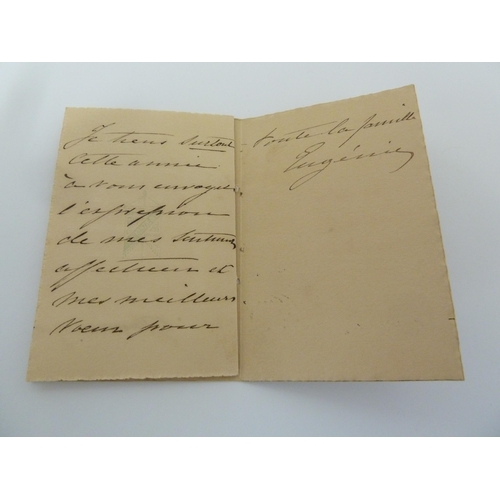 Je tiens surtout
cette année
à vous envoyer
l'expression
de mes sentiments
affectueux et
mes meilleurs
voeux pour
toute la famille
Eugénie